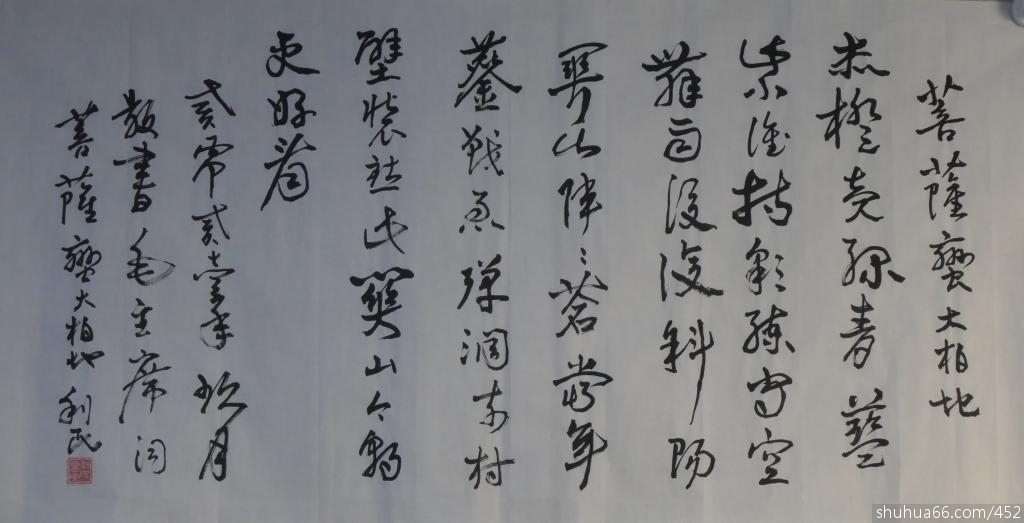 菩薩蠻大柏地
赤橙黄绿青藍
紫誰持彩練当空
舞雨後復斜陽
關山陣々蒼當年
鏖戰急彈洞前村
壁裝點此關山今朝
更好看
贰零贰壹年玖月
敬書毛主席词
菩薩蠻大柏地利民
shuhua66.com/452